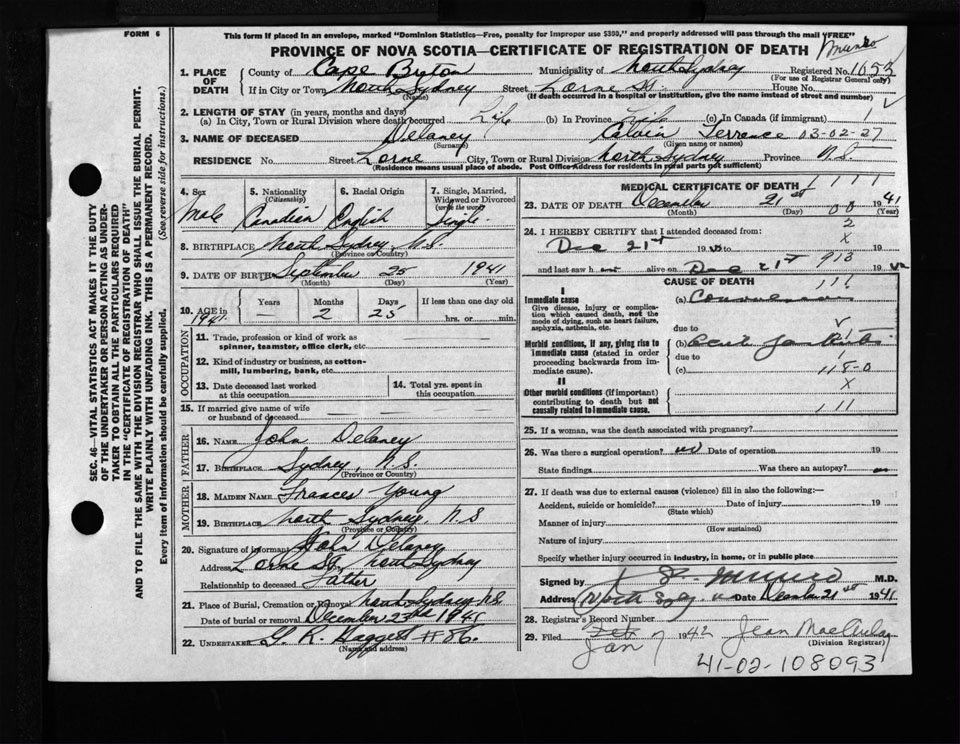 FORM 6
This form if placed in an envelope, marked "Dominion Statistics—Free, penalty for improper use $300," and properly addressed will pass through the mail "FREE"
PROVINCE OF NOVA SCOTIA—CERTIFICATE OF REGISTRATION OF DEATH
Munro
1. PLACE OF DEATH County of Cape Breton Municipality of North Sydney Registered No. 1053
(For use of Registrar General only)
If in City or Town North Sydney Street Lorne St. House No.
(Name) (If death occurred in a hospital or institution, give the name instead of street and number)
2. LENGTH OF STAY (in years, months and days)
(a) In City, Town or Rural Division where death occurred Life (b) In Province Life (c) In Canada (if immigrant)
3. NAME OF DECEASED Delaney Calvin Terrance 03-02-27
(Surname) (Given name or names)
RESIDENCE No. Street Lorne City, Town or Rural Division North Sydney Province N.S.
(Residence means usual place of abode. Post Office Address for residents in rural parts not sufficient)
SEC. 46—VITAL STATISTICS ACT MAKES IT THE DUTY
OF THE UNDERTAKER OR PERSON ACTING AS UNDER-
TAKER TO OBTAIN ALL THE PARTICULARS REQUIRED
IN THE "CERTIFICATE OF REGISTRATION OF DEATH"
AND TO FILE THE SAME WITH THE DIVISION REGISTRAR WHO SHALL ISSUE THE BURIAL PERMIT.
WRITE PLAINLY WITH UNFADING INK. THIS IS A PERMANENT RECORD.
Every item of information should be carefully supplied. (See reverse side for instructions.)
4. Sex 5. Nationality (Citizenship) 6. Racial Origin 7. Single, Married, Widowed or Divorced (write the word)
Male Canadian English Single
8. BIRTHPLACE North Sydney, N.S.
(Province or Country)
9. DATE OF BIRTH September 25 1941
(Month) (Day) (Year)
10. AGE in Years Months Days If less than one day old
1941 — 2 25 hrs. or min.
OCCUPATION
11. Trade, profession or kind of work as
spinner, teamster, office clerk, etc.
12. Kind of industry or business, as cotton-
mill, lumbering, bank, etc.
13. Date deceased last worked
at this occupation
14. Total yrs. spent in
this occupation
15. If married give name of wife
or husband of deceased
FATHER
16. NAME John Delaney
17. BIRTHPLACE Sydney, N.S.
(Province or Country)
MOTHER
18. MAIDEN NAME Frances Young
19. BIRTHPLACE North Sydney, N.S
(Province or Country)
20. Signature of informant John Delaney
Address Lorne St., North Sydney
Relationship to deceased Father
21. Place of Burial, Cremation or Removal North Sydney N.S.
Date of burial or removal December 23rd 1941
22. UNDERTAKER G. R. Haggett #86.
(Name and address)
MEDICAL CERTIFICATE OF DEATH
23. DATE OF DEATH December 21st 1941
(Month) (Day) (Year)
24. I HEREBY CERTIFY that I attended deceased from:
Dec 21st 19 to 19
and last saw h alive on Dec 21st 19
913
CAUSE OF DEATH
I
Immediate cause
Give disease, injury or complica-
tion which caused death, not the
mode of dying, such as heart failure,
asphyxia, asthenia, etc.
(a)
due to
Morbid conditions, if any, giving rise to
immediate cause (stated in order
proceeding backwards from im-
mediate cause).
(b)
due to
(c) 118-0
II
Other morbid conditions (if important)
contributing to death but not
causally related to immediate cause.
25. If a woman, was the death associated with pregnancy?
26. Was there a surgical operation? no Date of operation 19
State findings Was there an autopsy? no
27. If death was due to external causes (violence) fill in also the following:—
Accident, suicide or homicide? Date of injury 19
(State which)
Manner of injury
(How sustained)
Nature of injury
Specify whether injury occurred in industry, in home, or in public place
Signed by Munro M.D.
Address North Sydney Date December 21st 1941
28. Registrar's Record Number
29. Filed Feb 7 1942 Jean MacAulay
Jan (Division Registrar)
41-02-108093